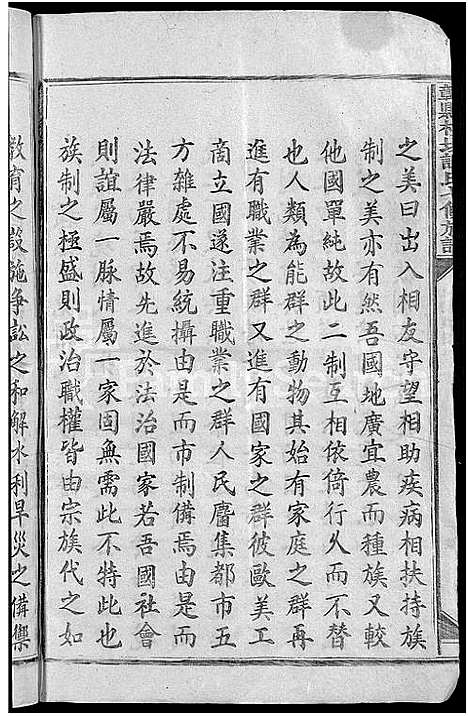 之美曰出入相友守望相助疾病相扶持族
制之美亦有然吾國地廣宜農而種族又較
他國單純故此二制互相依倚行久而不替
也人類為能群之動物其始有家庭之群再
進有職業之群又進有國家之群彼歐美工
商立國遂注重職業之群人民麕集都市五
方雜處不易統攝由是而市制備焉由是而
法律嚴焉故先進於法治國家若吾國社會
則誼屬一脉情屬一家固無需此不特此也
族制之極盛則政治職權皆由宗族代之如
教育之設施爭訟之和解水利旱災之備禦